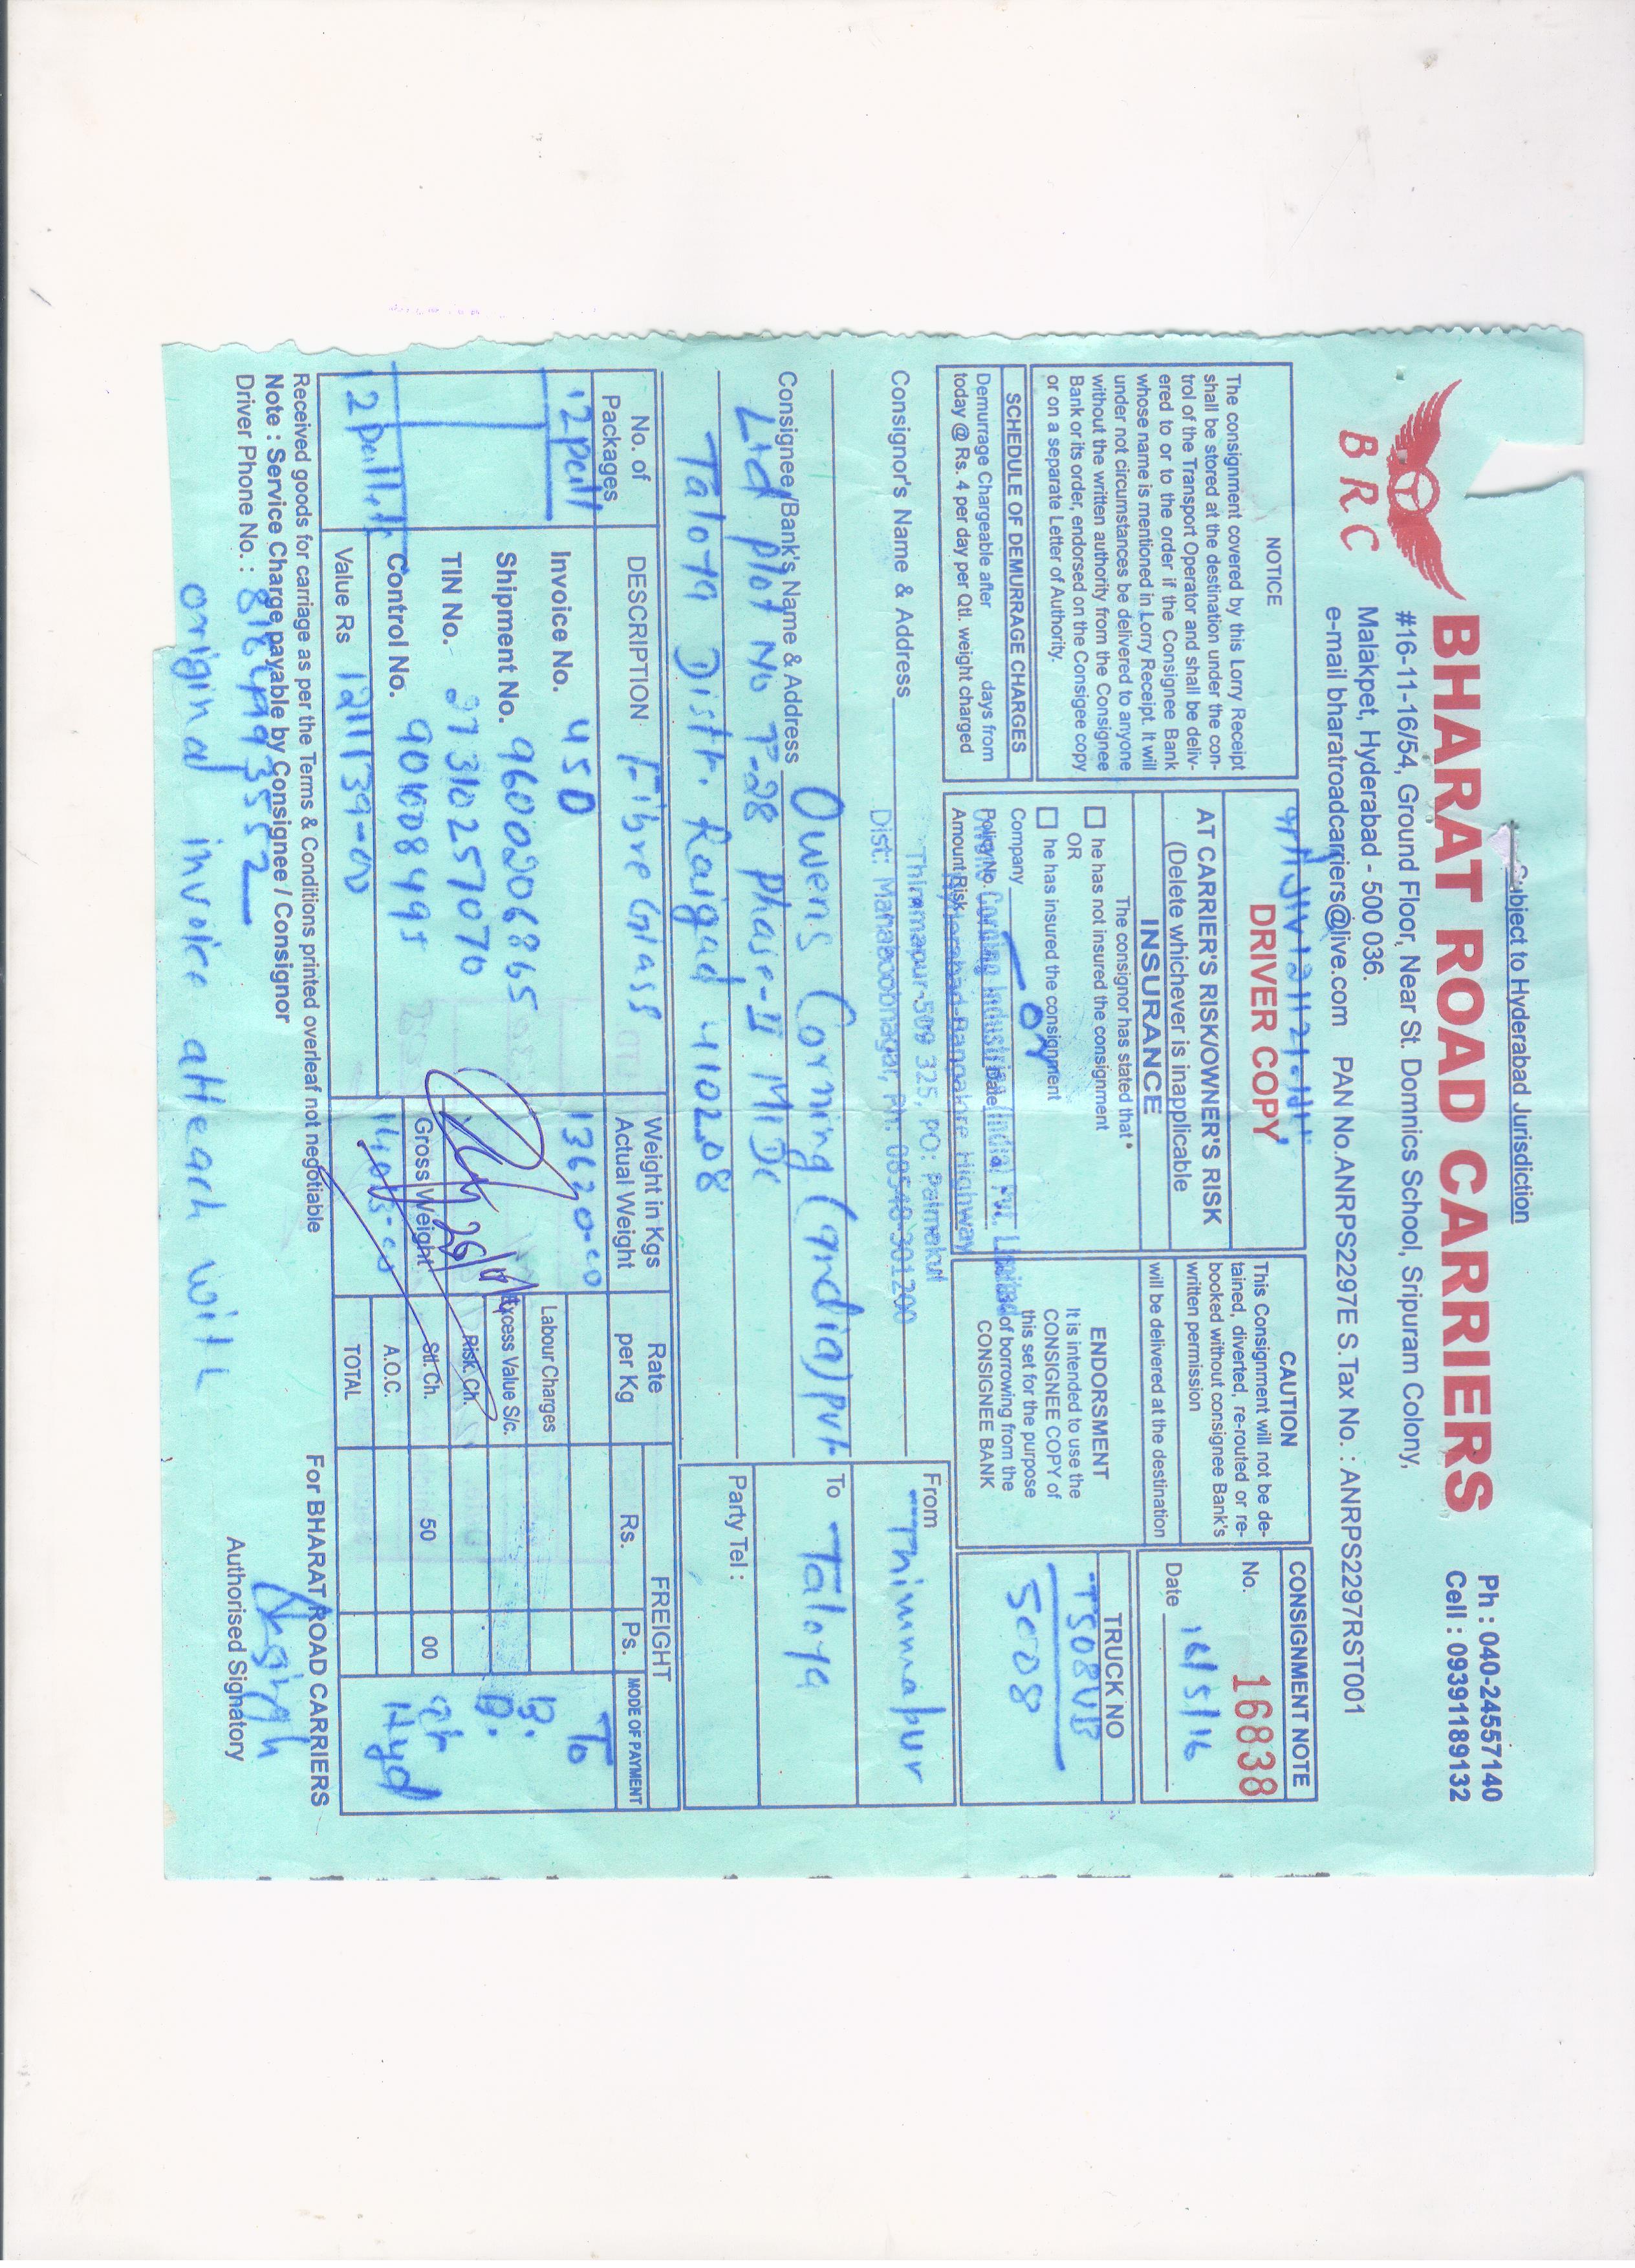 Subject to Hyderabad Jurisdiction
BRC
BHARAT ROAD CARRIERS
Ph : 040-24557140
Cell : 09391189132
#16-11-16/54, Ground Floor, Near St. Domnics School, Sripuram Colony,
Malakpet, Hyderabad - 500 036.
e-mail bharatroadcarriers@live.com PAN No.ANRPS2297E S.Tax No. : ANRPS2297RST001
NOTICE
The consignment covered by this Lorry Receipt
shall be stored at the destination under the con-
trol of the Transport Operator and shall be deliv-
ered to or to the order if the Consignee Bank
whose name is mentioned in Lorry Receipt. It will
under not circumstances be delivered to anyone
without the written authority from the Consignee
Bank or its order, endorsed on the Consigee copy
or on a separate Letter of Authority.
SCHEDULE OF DEMURRAGE CHARGES
Demurrage Chargeable after days from
today @ Rs. 4 per day per Qtl. weight charged
DRIVER COPY
AT CARRIER'S RISK/OWNER'S RISK
(Delete whichever is inapplicable
INSURANCE
The consignor has stated that*
he has not insured the consignment
OR
he has insured the consignment
Company
Policy No. Date
Amount Risk
CAUTION
This Consignment will not be de-
tained, diverted, re-routed or re-
booked without consignee Bank's
written permission
will be delivered at the destination
ENDORSMENT
It is intended to use the
CONSIGNEE COPY of
this set for the purpose
of borrowing from the
CONSIGNEE BANK
CONSIGNMENT NOTE
No. 16838
Date 16/5/16
TRUCK NO
TS08UB
5008
Owens Corning Industries (India) Pvt. Limited
Hyderabad-Bangalore Highway
Thimmapur-509 325, PO: Palmakul
Dist: Mahaboobnagar, Ph: 08548-301200
Consignor's Name & Address
From
Thimmapur
Consignee/Bank's Name & Address Owens Corning (India) Pvt
Ltd Plot No T-28 Phase-II MIDC
Taloja Distt. Raigad 410208
To Taloja
Party Tel :
No. of Packages
DESCRIPTION Fibre Glass
Weight in Kgs
Actual Weight
Rate per Kg
FREIGHT
Rs. Ps.
MODE OF PAYMENT
12 pall
Invoice No. 450
13620.00
Shipment No. 9600206865
TIN No. 27310257070
Control No. 9010084995
Gross Weight
Labour Charges
Excess Value S/c.
Risk. Ch.
Stl. Ch. 50 00
A.O.C.
TOTAL
To
B.
B.
Hyd
12 pallet
Value Rs 1211139-00
Received goods for carriage as per the Terms & Conditions printed overleaf not negotiable
Note : Service Charge payable by Consignee / Consignor
Driver Phone No. :
For BHARAT ROAD CARRIERS
Authorised Signatory
original invoice atteach with